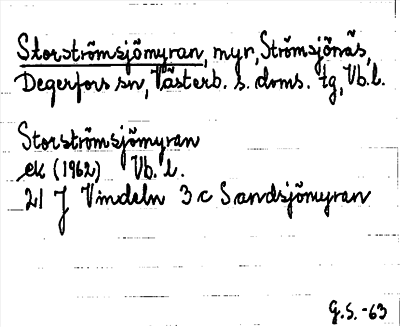 Storströmsjömyran, myr, Strömsjönäs,
Degerfors sn, Västerb. s. doms. tg, Vb. l.
Storströmsjömyran
ek (1962) Vb. l.
21 J Vindeln 3 c Sandsjömyran
G.S. -63